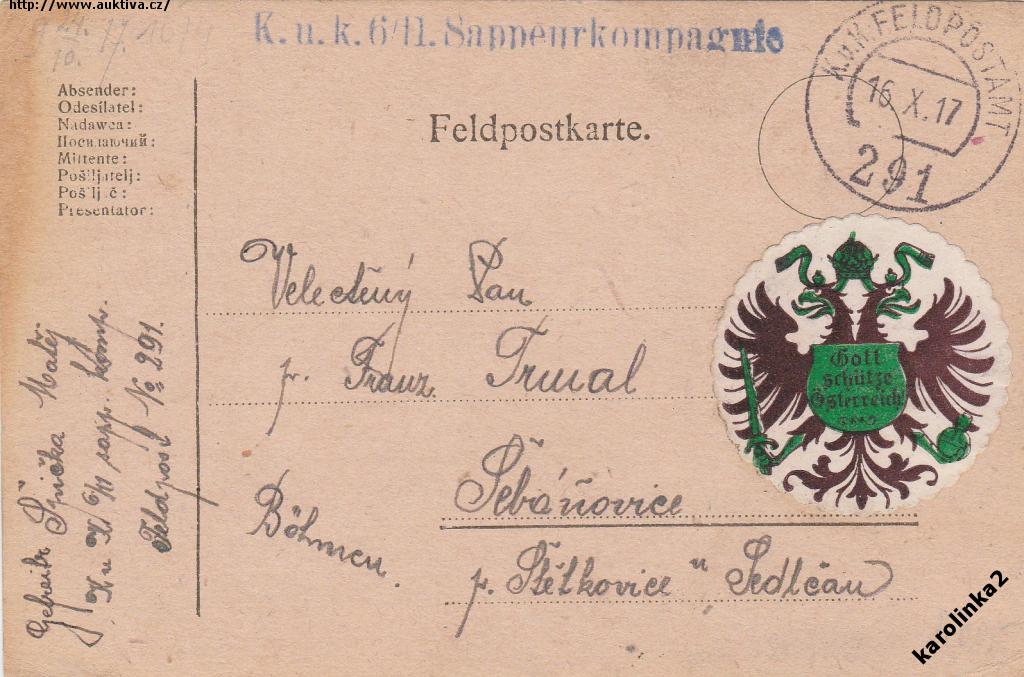 http://www.auktiva.cz/
K. u. k. 6/11. Sappeurkompagnie
K.u.K. FELDPOSTAMT
16. X. 17
291
Absender:
Odesílatel:
Nadawca:
Посилаючий:
Mittente:
Pošiljatelj:
Pošilj č:
Presentator:
Feldpostkarte.
Velectěný Pan
p. Franz. Trmal
Šebáňovice
Böhmen.
p. Štětkovice u Sedlčan
Gott
schütze
Österreich!
Gefreite Špička Matěj.
K u K 6/11 sapp. komp.
Feldpost No 291.
karolinka2